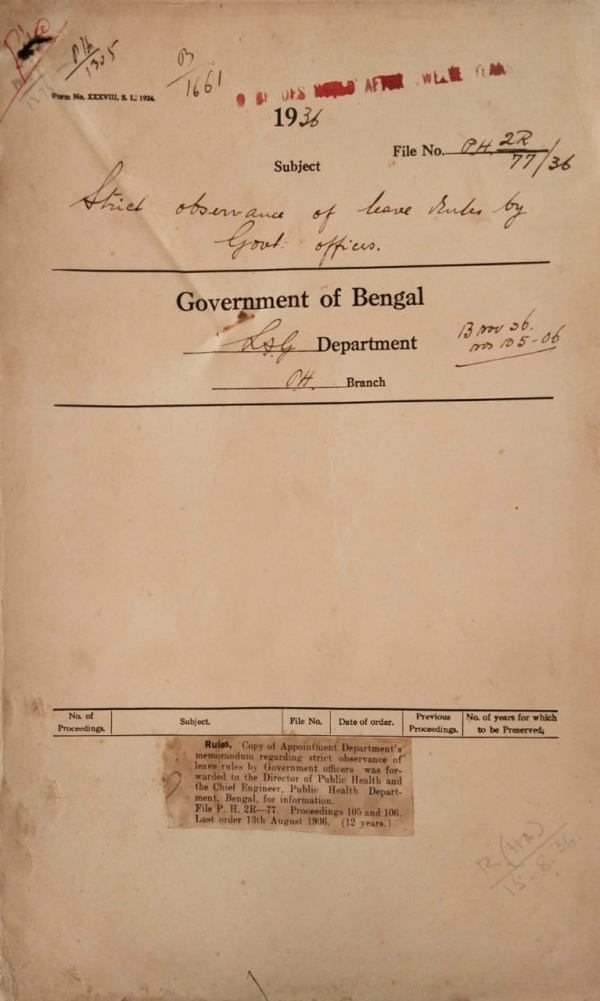 P.H.
1305
B
1661
Form No. XXXVIII, S. L. 1936.
AFTER TWELVE YEARS
1936
File No. P.H. 2R/77/36
Subject
Strict observance of leave rules by
Govt. offices.
Government of Bengal
L.S.G Department
B Nov 36.
nos 105-06
P.H. Branch
No. of Proceedings. Subject. File No. Date of order. Previous Proceedings. No. of years for which to be Preserved.
Rules. Copy of Appointment Department's
memorandum regarding strict observance of
leave rules by Government officers was for-
warded to the Director of Public Health and
the Chief Engineer, Public Health Depart-
ment, Bengal, for information.
File P. H. 2R—77. Proceedings 105 and 106.
Last order 13th August 1936. (12 years.)
15.8.36.